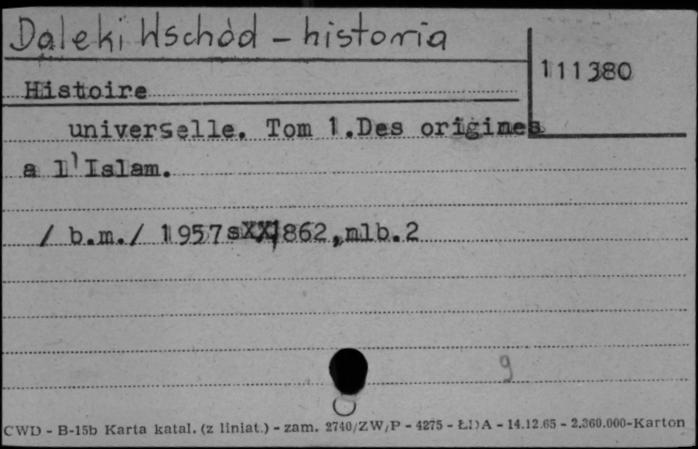 Daleki Wschód - historia
111380
Histoire
universelle. Tom 1.Des origines
a l'Islam.
/ b.m./ 1957 sXX,1862,nlb.2
9
CWD - B-15b Karta katal. (z liniat.) - zam. 2740/ZW/P - 4275 - ŁDA - 14.12.65 - 2.360.000-Karton